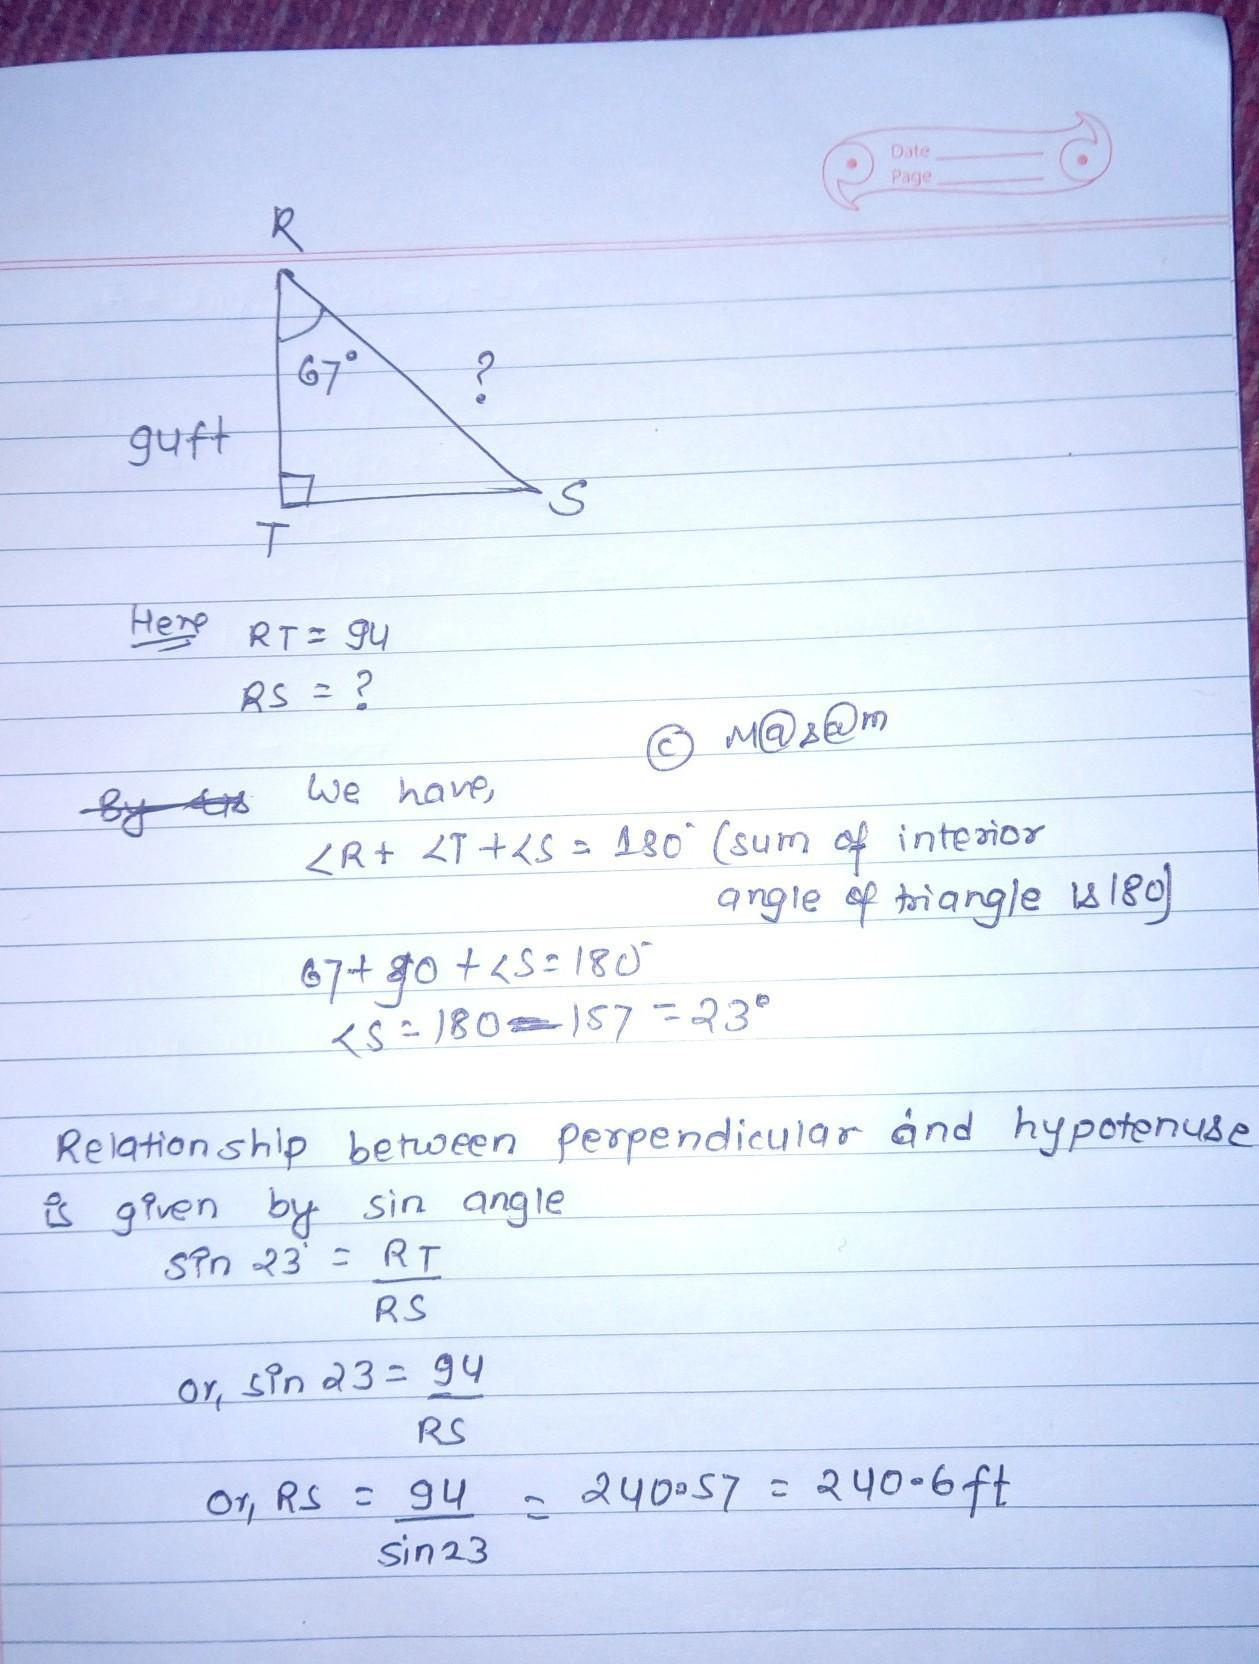 Date
Page
R
67°
?
94ft
S
T
Here RT = 94
RS = ?
© M@s@m
By We have,
<R + <T + <S = 180° (sum of interior
angle of triangle is 180)
67 + 90 + <S = 180°
<S = 180 - 157 = 23°
Relationship between perpendicular and hypotenuse
is given by sin angle
sin 23° = RT
RS
or, sin 23 = 94
RS
or, RS = 94 = 240.57 = 240.6 ft
sin23